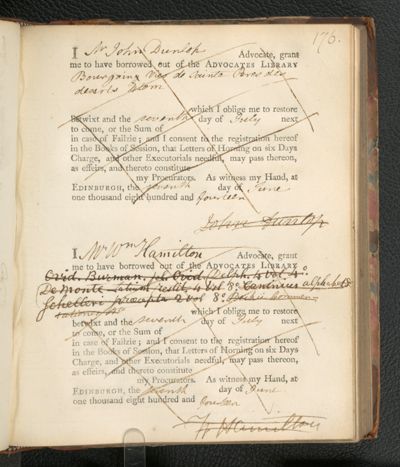 176.
I Mr John Dunlop Advocate, grant
me to have borrowed out of the ADVOCATES LIBRARY
Bourgoing Vies de Saints Peres des
deserts 2 tom
which I oblige me to restore
betwixt and the seventh day of July next
to come, or the Sum of
in case of Failzie; and I consent to the registration hereof
in the Books of Session, that Letters of Horning on six Days
Charge, and other Executorials needful, may pass thereon,
as effeirs, and thereto constitute
my Procurators. As witness my Hand, at
EDINBURGH, the seventh day of June
one thousand eight hundred and fourteen
John Dunlop
I Mr Wm Hamilton Advocate, grant
me to have borrowed out of the ADVOCATES LIBRARY
Ovid. Burman, 4 vol. 4o
De Monte 4 vol 8o
Schelleri præcepta 2 vol 8o
which I oblige me to restore
betwixt and the seventh day of July next
to come, or the Sum of
in case of Failzie; and I consent to the registration hereof
in the Books of Session, that Letters of Horning on six Days
Charge, and other Executorials needful, may pass thereon,
as effeirs, and thereto constitute
my Procurators. As witness my Hand, at
EDINBURGH, the seventh day of June
one thousand eight hundred and fourteen
W Hamilton